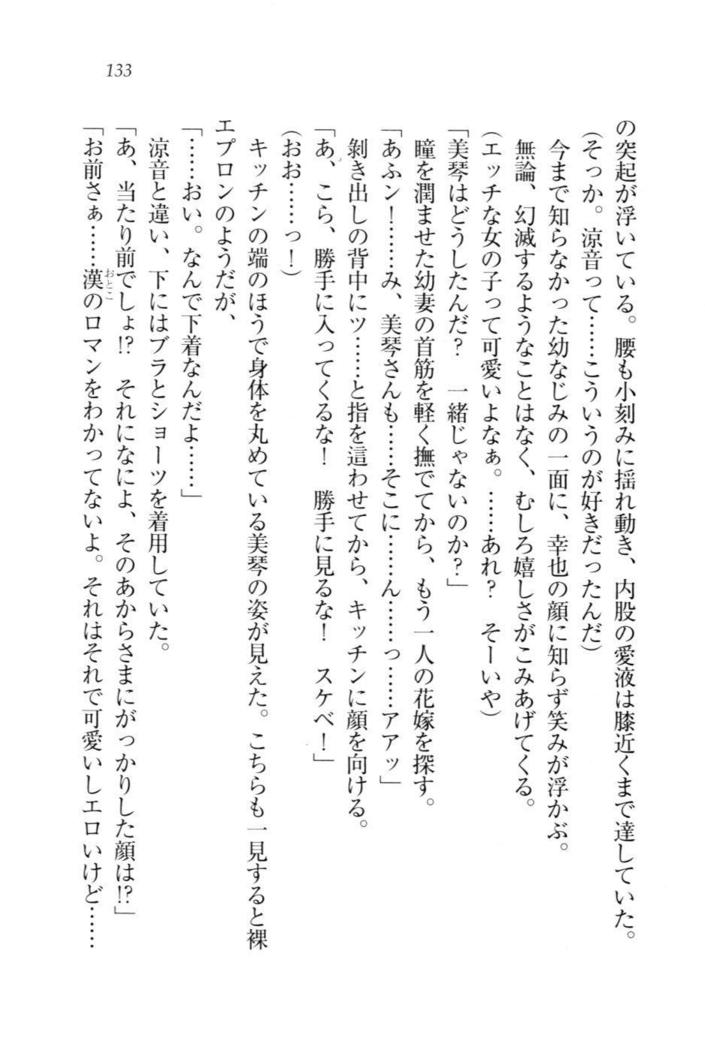 133
の突起が浮いている。腰も小刻みに揺れ動き、内股の愛液は膝近くまで達していた。
（そっか。涼音って……こういうのが好きだったんだ）
今まで知らなかった幼なじみの一面に、幸也の顔に知らず笑みが浮かぶ。
無論、幻滅するようなことはなく、むしろ嬉しさがこみあげてくる。
（エッチな女の子って可愛いよなぁ。……あれ？　そーいや）
「美琴はどうしたんだ？　一緒じゃないのか？」
瞳を潤ませた幼妻の首筋を軽く撫でてから、もう一人の花嫁を探す。
「あふン！……み、美琴さんも……そこに……ん……っ……アアッ」
剝き出しの背中にツ……と指を這わせてから、キッチンに顔を向ける。
「あ、こら、勝手に入ってくるな！　勝手に見るな！　スケベ！」
（おお……っ！）
キッチンの端のほうで身体を丸めている美琴の姿が見えた。こちらも一見すると裸
エプロンのようだが、
「……おい。なんで下着なんだよ……」
涼音と違い、下にはブラとショーツを着用していた。
「あ、当たり前でしょ!?　それになによ、そのあからさまにがっかりした顔は!?」
「お前さぁ……漢のロマンをわかってないよ。それはそれで可愛いしエロいけど……
おとこ